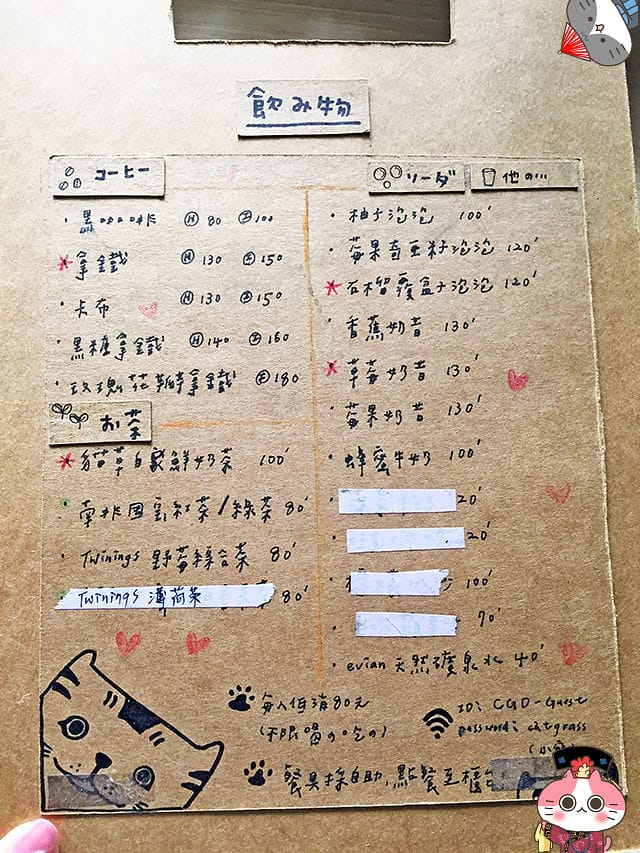 飲み物
コーヒー
・黑咖啡 Ⓗ 80 Ⓘ 100
*拿鐵 Ⓗ 130 Ⓘ 150
・卡布 Ⓗ 130 Ⓘ 150
・黑糖拿鐵 Ⓗ 140 Ⓘ 160
・玫瑰花瓣拿鐵 Ⓘ 180
お茶
*貓草自家鮮奶茶 100'
・南非国宝紅茶/綠茶 80'
・Twinings 野莓綜合茶 80'
Twinings 薄荷茶 80'
ソーダ 他の...
・柚子泡泡 100'
・莓果奇亞籽泡泡 120'
*石榴覆盆子泡泡 120'
・香蕉奶昔 130'
*草莓奶昔 130'
・莓果奶昔 130'
・蜂蜜牛奶 100'
20'
20'
100'
70'
・evian 天然礦泉水 40'
每人低消80元
(不限喝の吃の)
ID: CGD-Guest
password: catgrass
(小寫
餐具採自助,點餐至櫃台